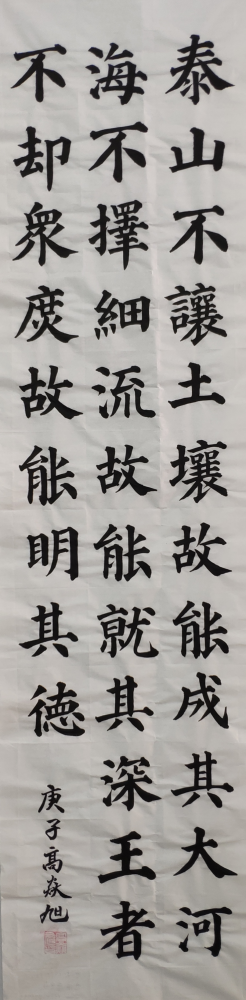 泰山不讓土壤故能成其大河
海不擇細流故能就其深王者
不却衆庶故能明其德
庚子高焱旭